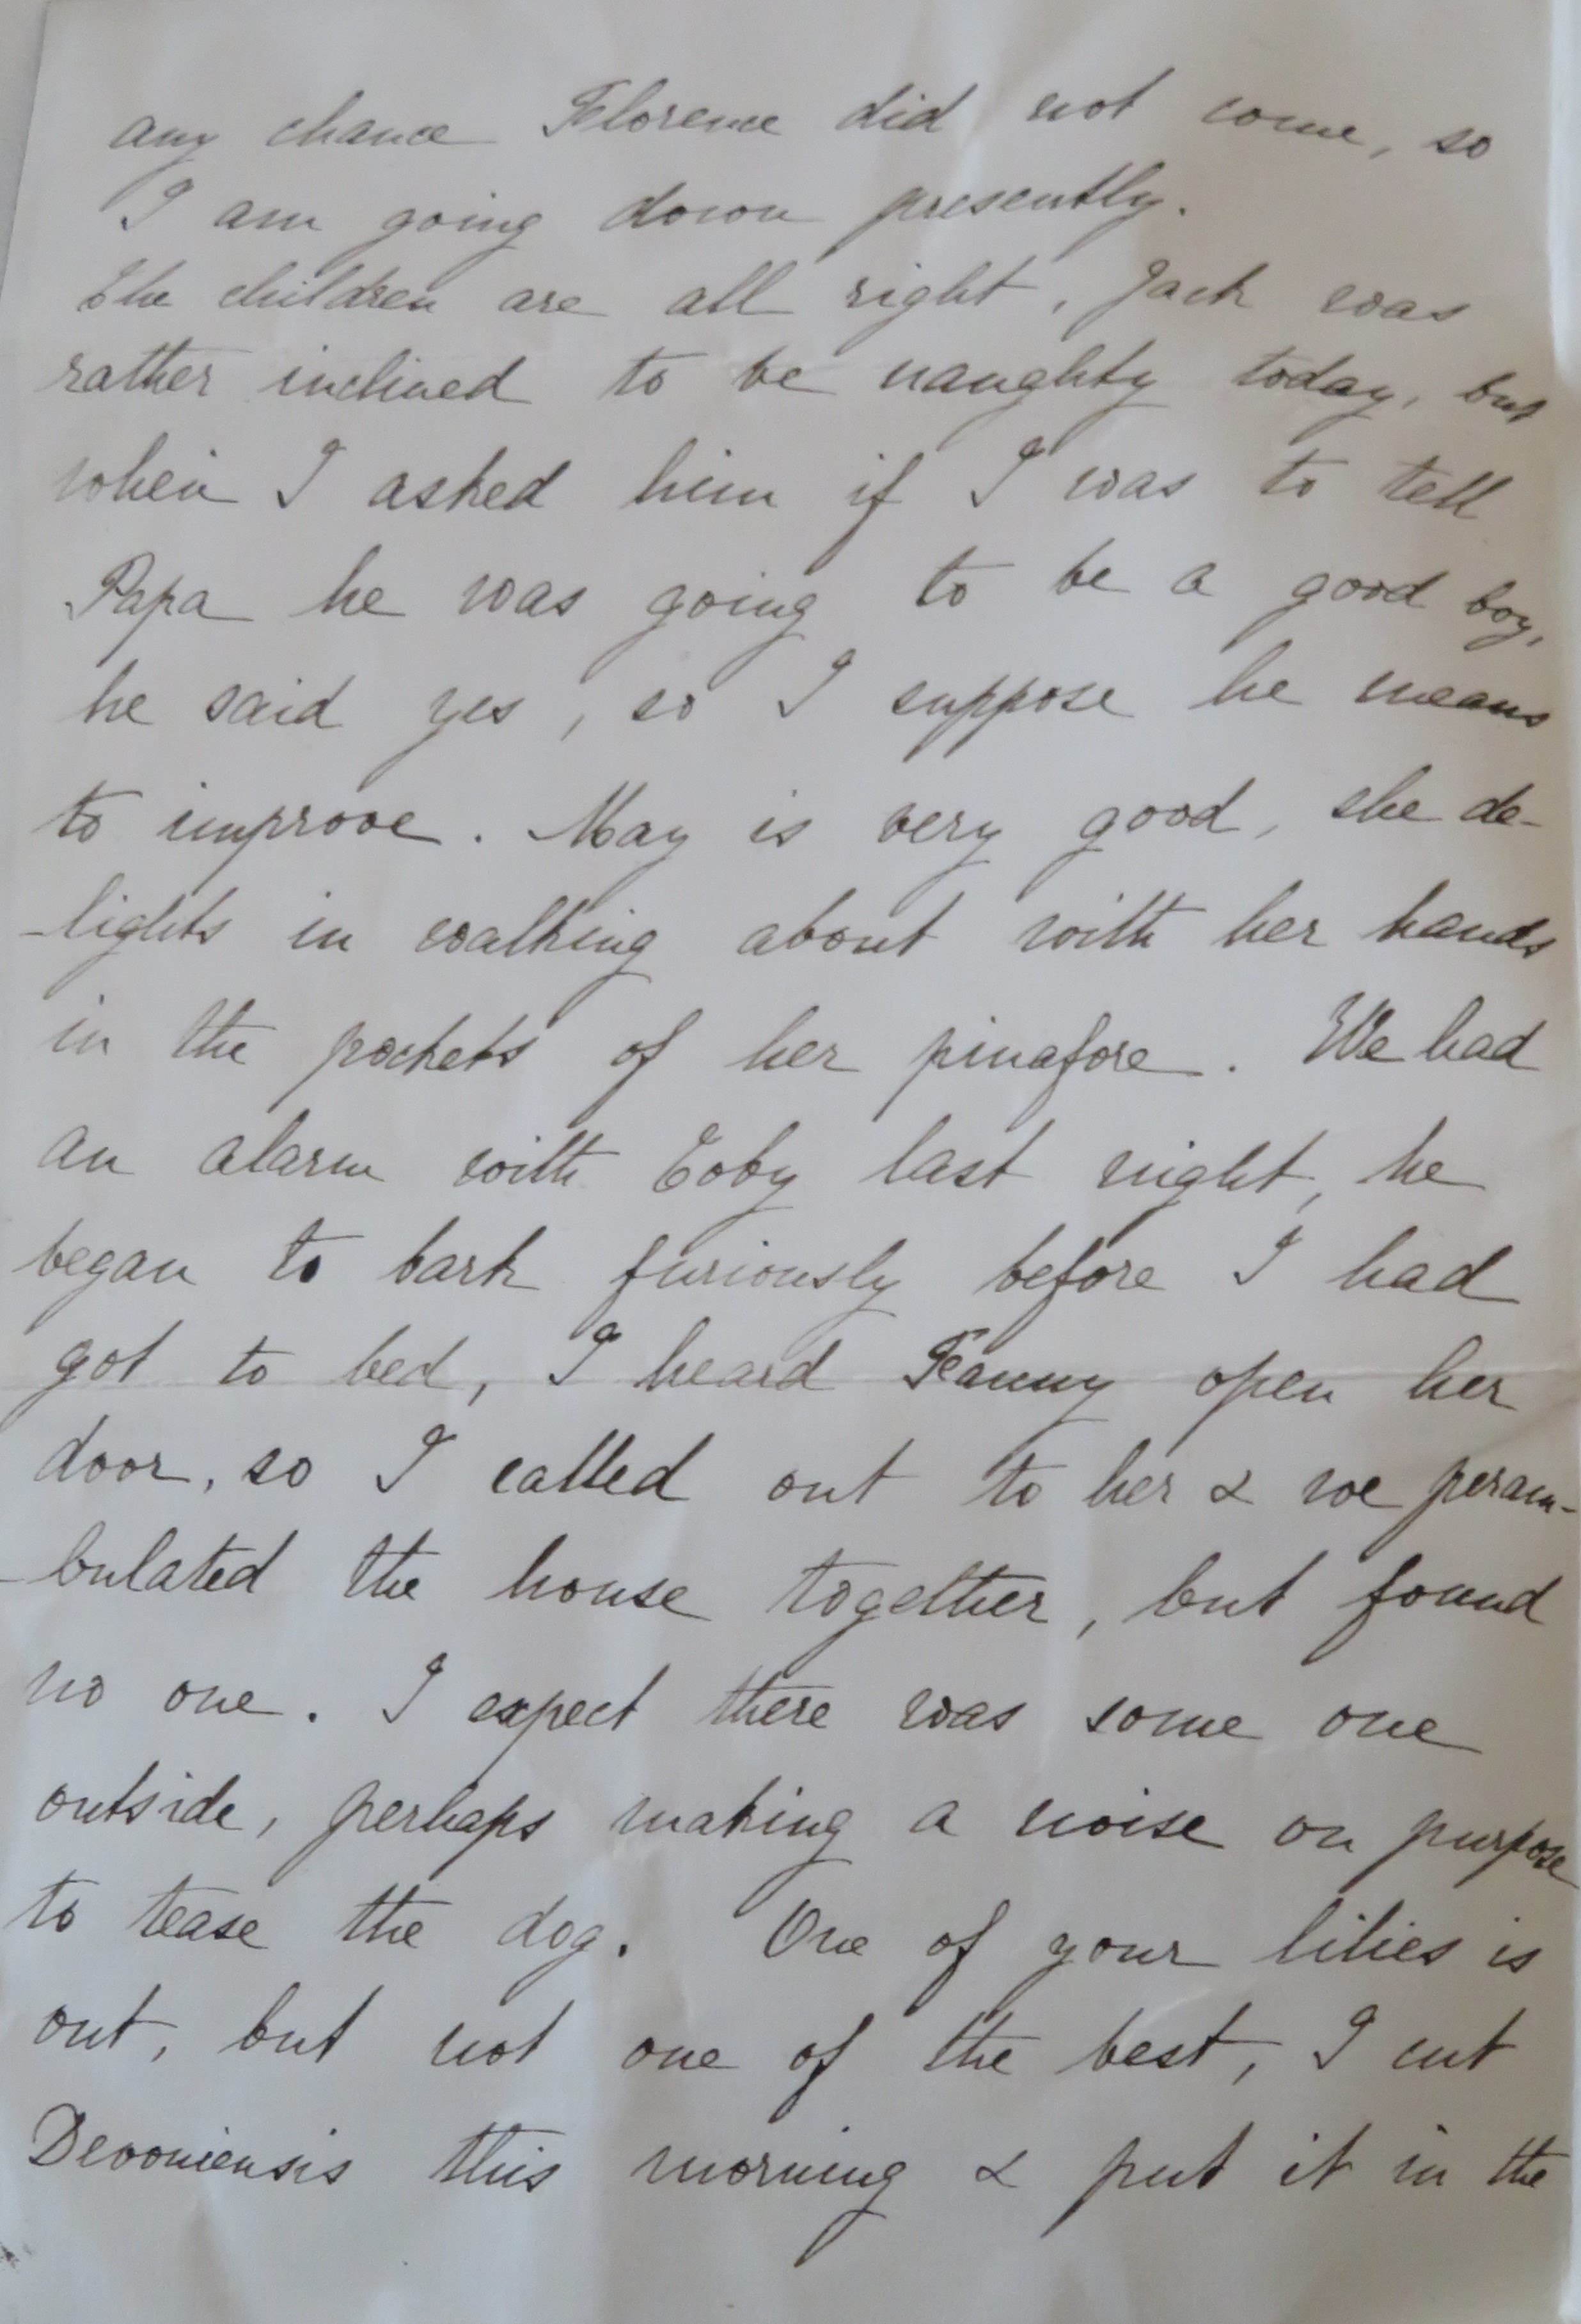 any chance Florence did not come, so
I am going down presently.
The children are all right, Jack was
rather inclined to be naughty today, but
when I asked him if I was to tell
Papa he was going to be a good boy,
he said yes, so I suppose he means
to improve. May is very good, she de-
-lights in walking about with her hands
in the pockets of her pinafore. We had
an alarm with Toby last night, he
began to bark furiously before I had
got to bed, I heard Fanny open her
door, so I called out to her & we peram-
-bulated the house together, but found
no one. I expect there was some one
outside, perhaps making a noise on purpose
to tease the dog. One of your lilies is
out, but not one of the best, I cut
Devoniensis this morning & put it in the